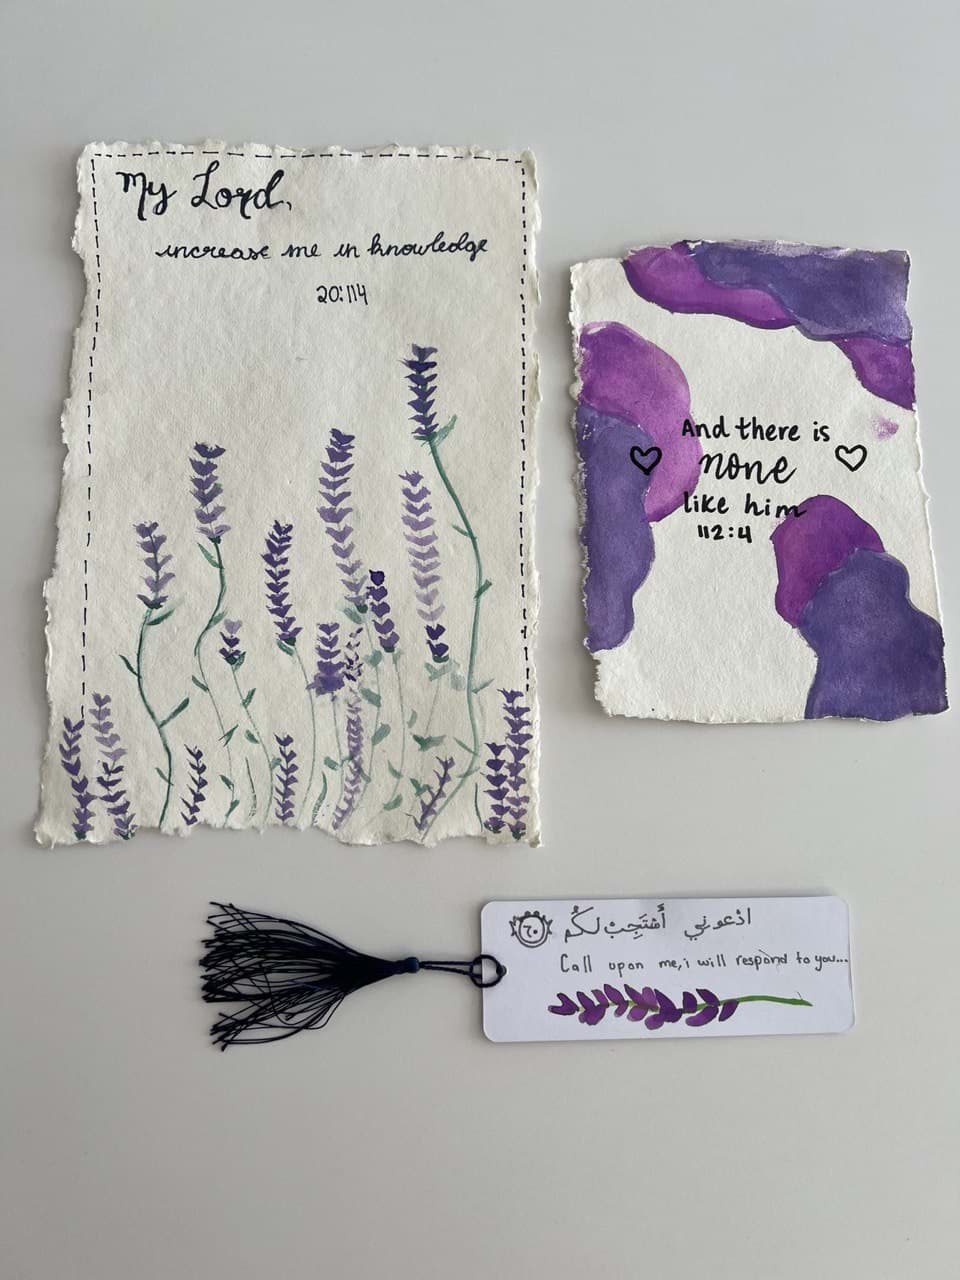 My Lord,
increase me in knowledge
20:114
And there is
none
like him
112:4
ادْعوني أَسْتَجِبْ لكُم ٦٠
Call upon me, i will respond to you...